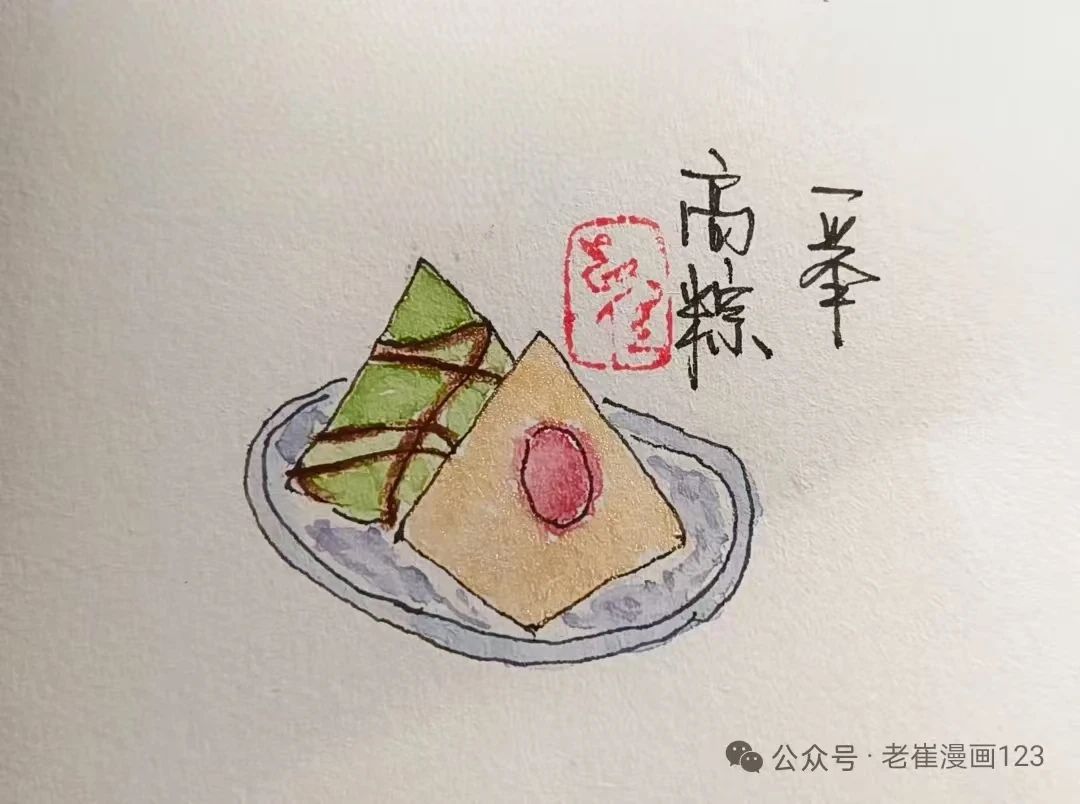 一举
高粽
老崔
公众号·老崔漫画123